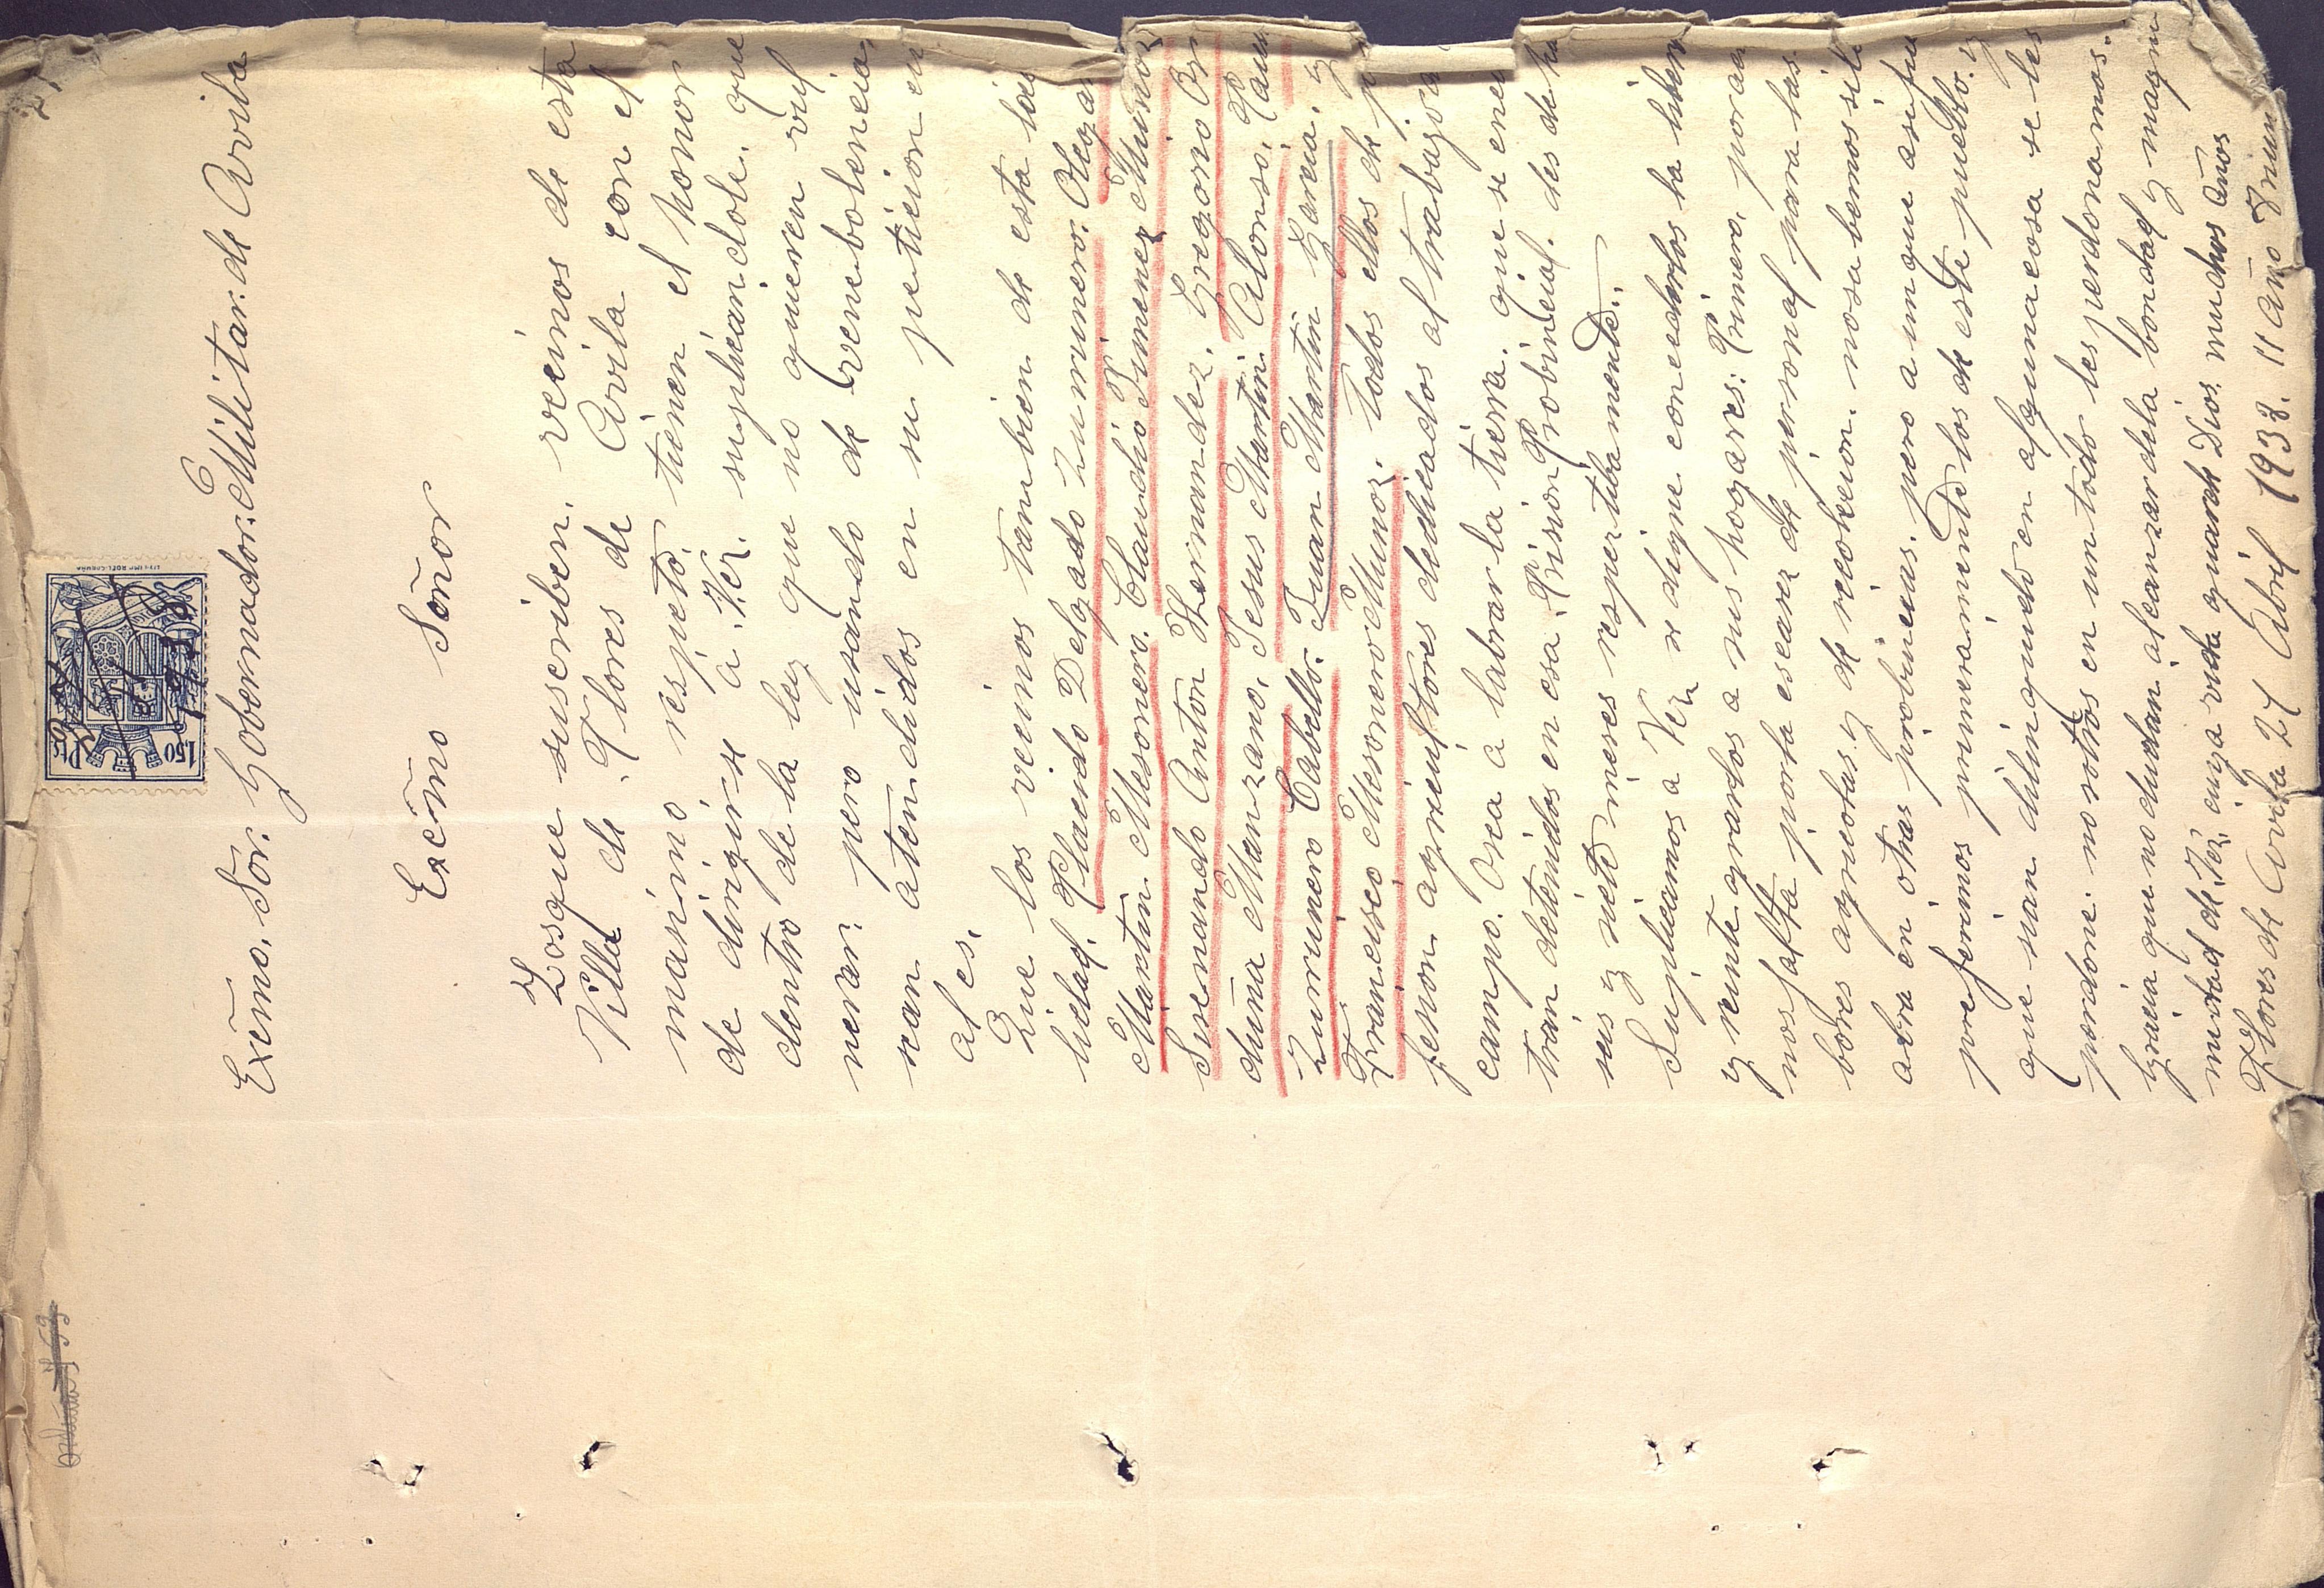 Excmo. Sor. Gobernador. Militar. de Avila
Excmo Señor
Los que suscriben, vecinos de esta
Villa de Flores de Avila con el
masimo respeto, tienen el honor
de dirigirse a V.ez. suplicandole, que
dentro de la ley que no quieren vul
nerar: pero usando de venebolencia,
sean atendidos en su peticion en
al es.
Que los vecinos tambien de esta loca
lidad, Placido Delgado Zurumero. Olega
Martin Mesonero. Claudio Jimenez Muñoz
Sisenando Anton Hernandez, Gregorio
dueña Manzano, Jesus Martin Alonso,
Zurumero Cabello. Juan Martin Garcia, y
Francisco Mesonero Muñoz. todos ellos de p
fesion agricultores dedicados al trabajo d
campo. Osea a labrar la tierra. que se encu
tran detenidos en esa Prision Probincial. desde ha
seis y siete meses respertibamente..
Suplicamos a Vez se digne concederlos la liber
y reinte grarlos a sus hogares: Primero, por aa
nos falta porla escarez de personal para las
bores agricolas y de recolexion. nosa bemos si l
abra en otras probincias. pero a un que asi fu
preferimos primeramente los de este pueblo. y
que sian delinquido en alguna cosa se les
perdone. nosotros en un todo les perdonamos.
Gracia que no dudan alcanzar dela bondad y magn
midad de Vez cuya vida guarde Dios. muchos años
Flores de Avila 27 Abril 1938. II año Triun
1.50 Pts
LIT. E IMP. ROEL-CORUÑA